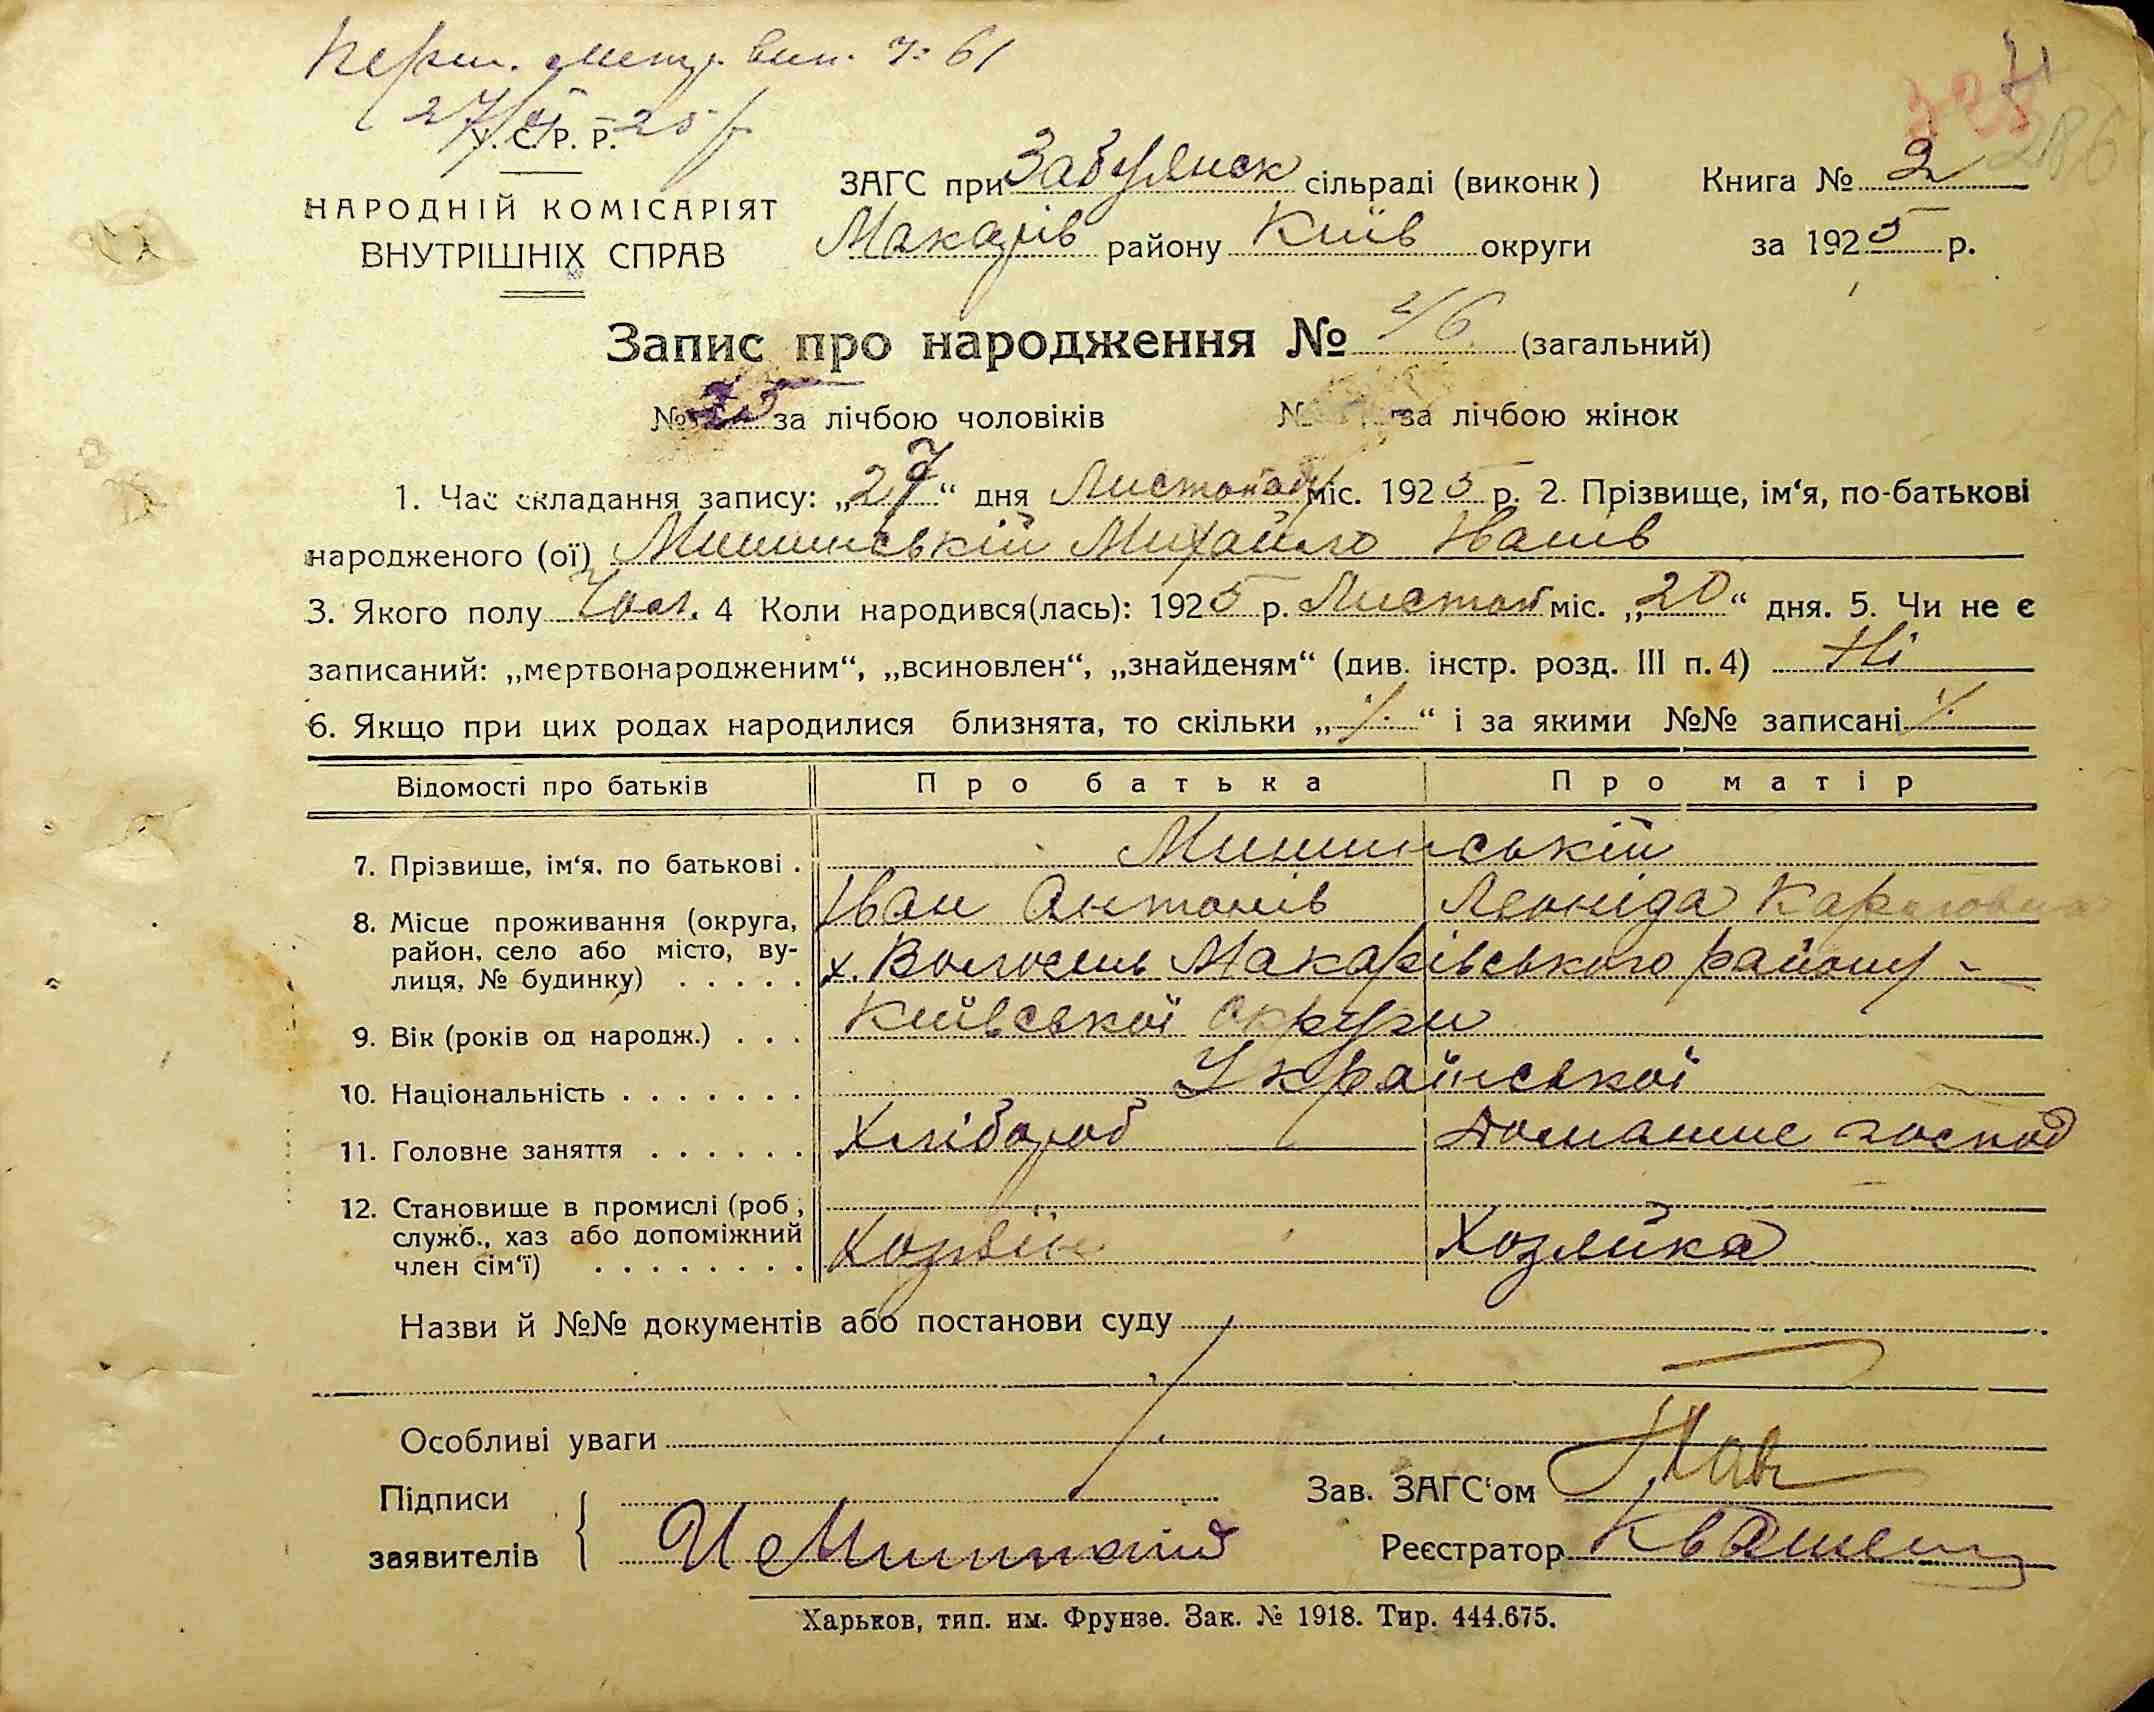 вип. 61
27/XI 25 р
У. С. Р. Р.
НАРОДНІЙ КОМІСАРІЯТ
ВНУТРІШНІХ СПРАВ
ЗАГС при Забуянск сільраді (виконк)
Макарів району Київ округи
Книга № 2
за 1925 р.
Запис про народження № (загальний)
№ за лічбою чоловіків № за лічбою жінок
1. Час складання запису: „27“ дня Листопаду міс. 1925 р. 2. Прізвище, ім‘я, по-батькові
народженого (ої) Мишинський Михайло Іванів
3. Якого полу Чол. 4 Коли народився(лась): 1925 р. Листоп міс. „20“ дня. 5. Чи не є
записаний: „мертвонародженим“, „всиновлен“, „знайденям“ (див. інстр. розд. III п. 4) Ні
6. Якщо при цих родах народилися близнята, то скільки „ “ і за якими №№ записані
Відомості про батьків Про батька Про матір
7. Прізвище, ім‘я, по батькові . Мишинській
Іван Антонів Леоніда
8. Місце проживання (округа,
район, село або місто, ву-
лиця, № будинку) . . . . .
х. Макарівського району
Київської округи
9. Вік (років од народж.) . . .
10. Національність . . . . . . . Української
11. Головне заняття . . . . . . Хлібороб Домашнє господ
12. Становище в промислі (роб,
служб., хаз або допоміжний
член сім‘ї) . . . . . . . .
Хозяїн Хозяйка
Назви й №№ документів або постанови суду
Особливі уваги
Підписи
заявителів
Зав. ЗАГС‘ом
Реєстратор
Харьков, тип. им. Фрунзе. Зак. № 1918. Тир. 444.675.